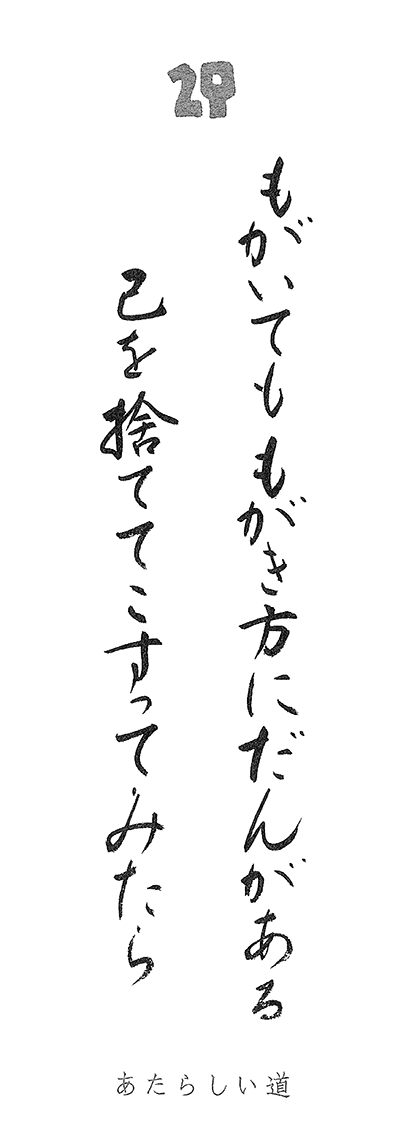 29
もがいても もがき方にだんがある
己を捨ててこすってみたら
あたらしい道